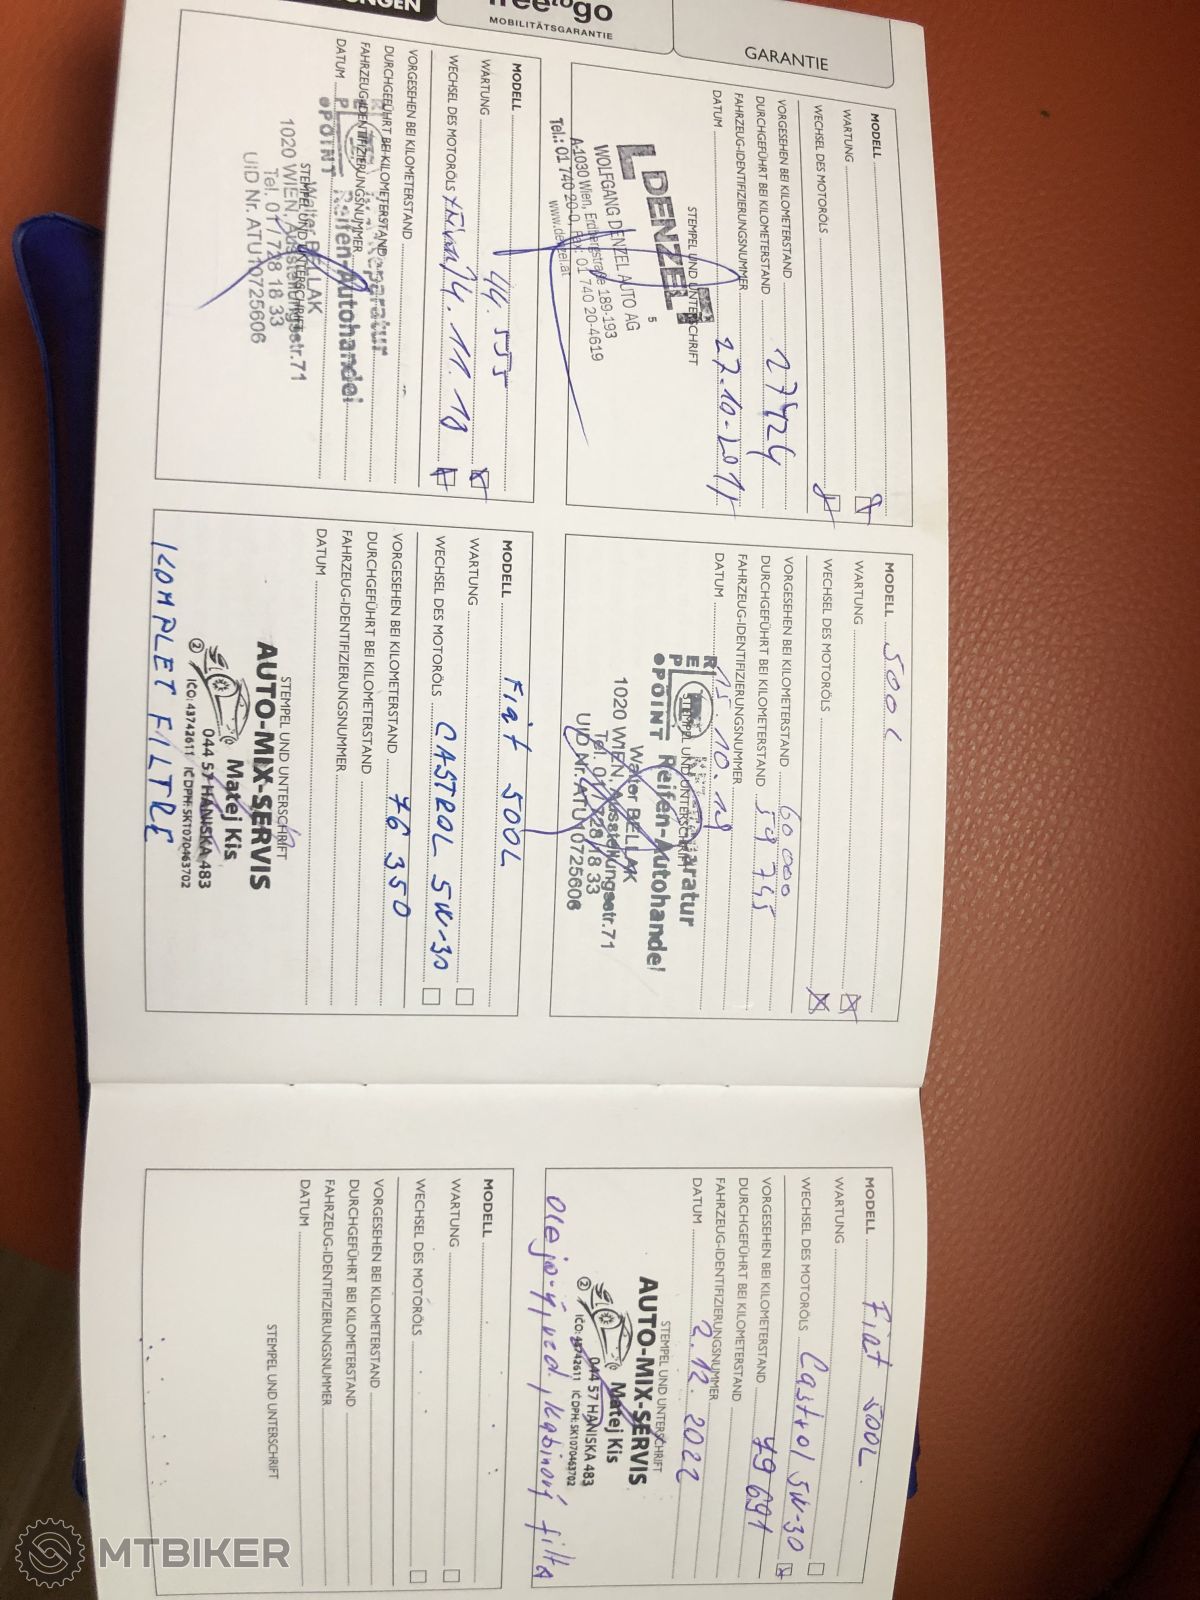 free to go
MOBILITÄTSGARANTIE
GARANTIE
MODELL
WARTUNG
WECHSEL DES MOTORÖLS
VORGESEHEN BEI KILOMETERSTAND
DURCHGEFÜHRT BEI KILOMETERSTAND 27424
FAHRZEUG-IDENTIFIZIERUNGSNUMMER
DATUM
STEMPEL UND UNTERSCHRIFT
DENZEL
5
WOLFGANG DENZEL AUTO AG
A-1030 Wien, Erdbergstraße 189-193
Tel.: 01 740 20-0, Fax: 01 740 20-4619
www.denzel.at
MODELL
WARTUNG 44.555
WECHSEL DES MOTORÖLS
VORGESEHEN BEI KILOMETERSTAND
DURCHGEFÜHRT BEI KILOMETERSTAND
FAHRZEUG-IDENTIFIZIERUNGSNUMMER
DATUM
STEMPEL UND UNTERSCHRIFT
REP
POINT
Reparatur
Reifen-Autohandel
Walter BELLAK
1020 WIEN, Ausstellungsstr.71
Tel. 01 / 728 18 33
UID Nr. ATU10725606
MODELL 500 L
WARTUNG
WECHSEL DES MOTORÖLS
VORGESEHEN BEI KILOMETERSTAND 60 000
DURCHGEFÜHRT BEI KILOMETERSTAND 59 745
FAHRZEUG-IDENTIFIZIERUNGSNUMMER
DATUM 15.10.19
STEMPEL UND UNTERSCHRIFT
REP
POINT
Reparatur
Reifen-Autohandel
Walter BELLAK
1020 WIEN, Ausstellungsstr.71
Tel. 01 / 728 18 33
UID Nr. ATU10725606
MODELL Fiat 500L
WARTUNG
WECHSEL DES MOTORÖLS CASTROL 5W-30
VORGESEHEN BEI KILOMETERSTAND 76 350
DURCHGEFÜHRT BEI KILOMETERSTAND
FAHRZEUG-IDENTIFIZIERUNGSNUMMER
DATUM
STEMPEL UND UNTERSCHRIFT
AUTO-MIX-SERVIS
Matej Kis
044 57 HANISKA 483
② IČO: 43742611 IČ DPH: SK1070463702
KOMPLET FILTRE
MODELL Fiat 500L
WARTUNG
WECHSEL DES MOTORÖLS Castrol 5W-30
VORGESEHEN BEI KILOMETERSTAND 79 691
DURCHGEFÜHRT BEI KILOMETERSTAND
FAHRZEUG-IDENTIFIZIERUNGSNUMMER
DATUM 2.12.2022
STEMPEL UND UNTERSCHRIFT
AUTO-MIX-SERVIS
Matej Kis
044 57 HANISKA 483
② IČO: 43742611 IČ DPH: SK1070463702
Kabinový filter
MODELL
WARTUNG
WECHSEL DES MOTORÖLS
VORGESEHEN BEI KILOMETERSTAND
DURCHGEFÜHRT BEI KILOMETERSTAND
FAHRZEUG-IDENTIFIZIERUNGSNUMMER
DATUM
STEMPEL UND UNTERSCHRIFT
MTBIKER